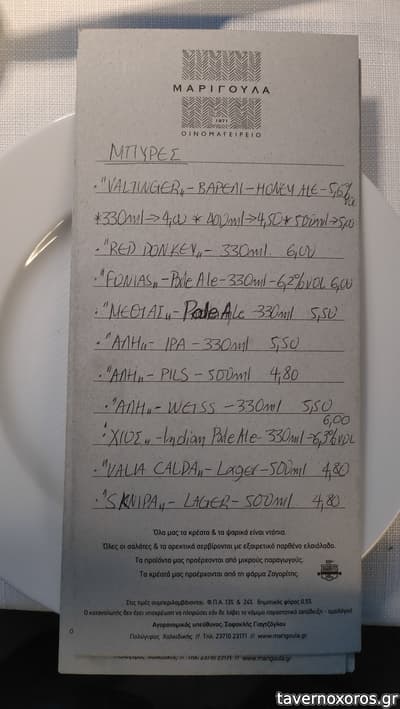 ΜΑΡΙΓΟΥΛΑ
1971
ΟΙΝΟΜΑΓΕΙΡΕΙΟ
ΜΠΥΡΕΣ
• "VALTINGER" - ΒΑΡΕΛΙ - HONEY ALE - 5,6% VOL
*330ml → 4,00 * 400ml → 4,50 * 500ml → 5,00
• "RED DONKEY" - 330ml. 6,00
• "FONIAS" - Pale Ale - 330ml - 6,2% VOL 6,00
• "ΜΕΘΥΑΣΙ" - Pale Ale - 330ml 5,50
• "ΑΛΗ" - IPA - 330ml 5,50
• "ΑΛΗ" - PILS - 500ml 4,80
• "ΑΛΗ" - WEISS - 330ml 5,50
6,00
• "ΧΙΟΣ" - Indian Pale Ale - 330ml - 6,3% VOL
• "VALIA CALDA" - Lager - 500ml 4,80
• "SKNIPA" - LAGER - 500ml 4,80
Όλα μας τα κρέατα & τα ψαρικά είναι ντόπια.
Όλες οι σαλάτες & τα ορεκτικά σερβίρονται με εξαιρετικό παρθένο ελαιόλαδο.
Τα προϊόντα μας προέρχονται από μικρούς παραγωγούς.
Τα κρέατά μας προέρχονται από τη φάρμα Ζαγορίτης.
Στις τιμές συμπεριλαμβάνονται: Φ.Π.Α. 13% & 24% δημοτικός φόρος 0,5%
Ο καταναλωτής δεν έχει υποχρέωση να πληρώσει εάν δε λάβει το νόμιμο παραστατικό (απόδειξη - τιμολόγιο)
Αγορανομικός υπεύθυνος: Σοφοκλής Γιαγτζόγλου
Πολύγυρος, Χαλκιδικής // Τηλ. 23710 23171 // www.marigoula.gr
www.marigoula.gr
tavernoxoros.gr